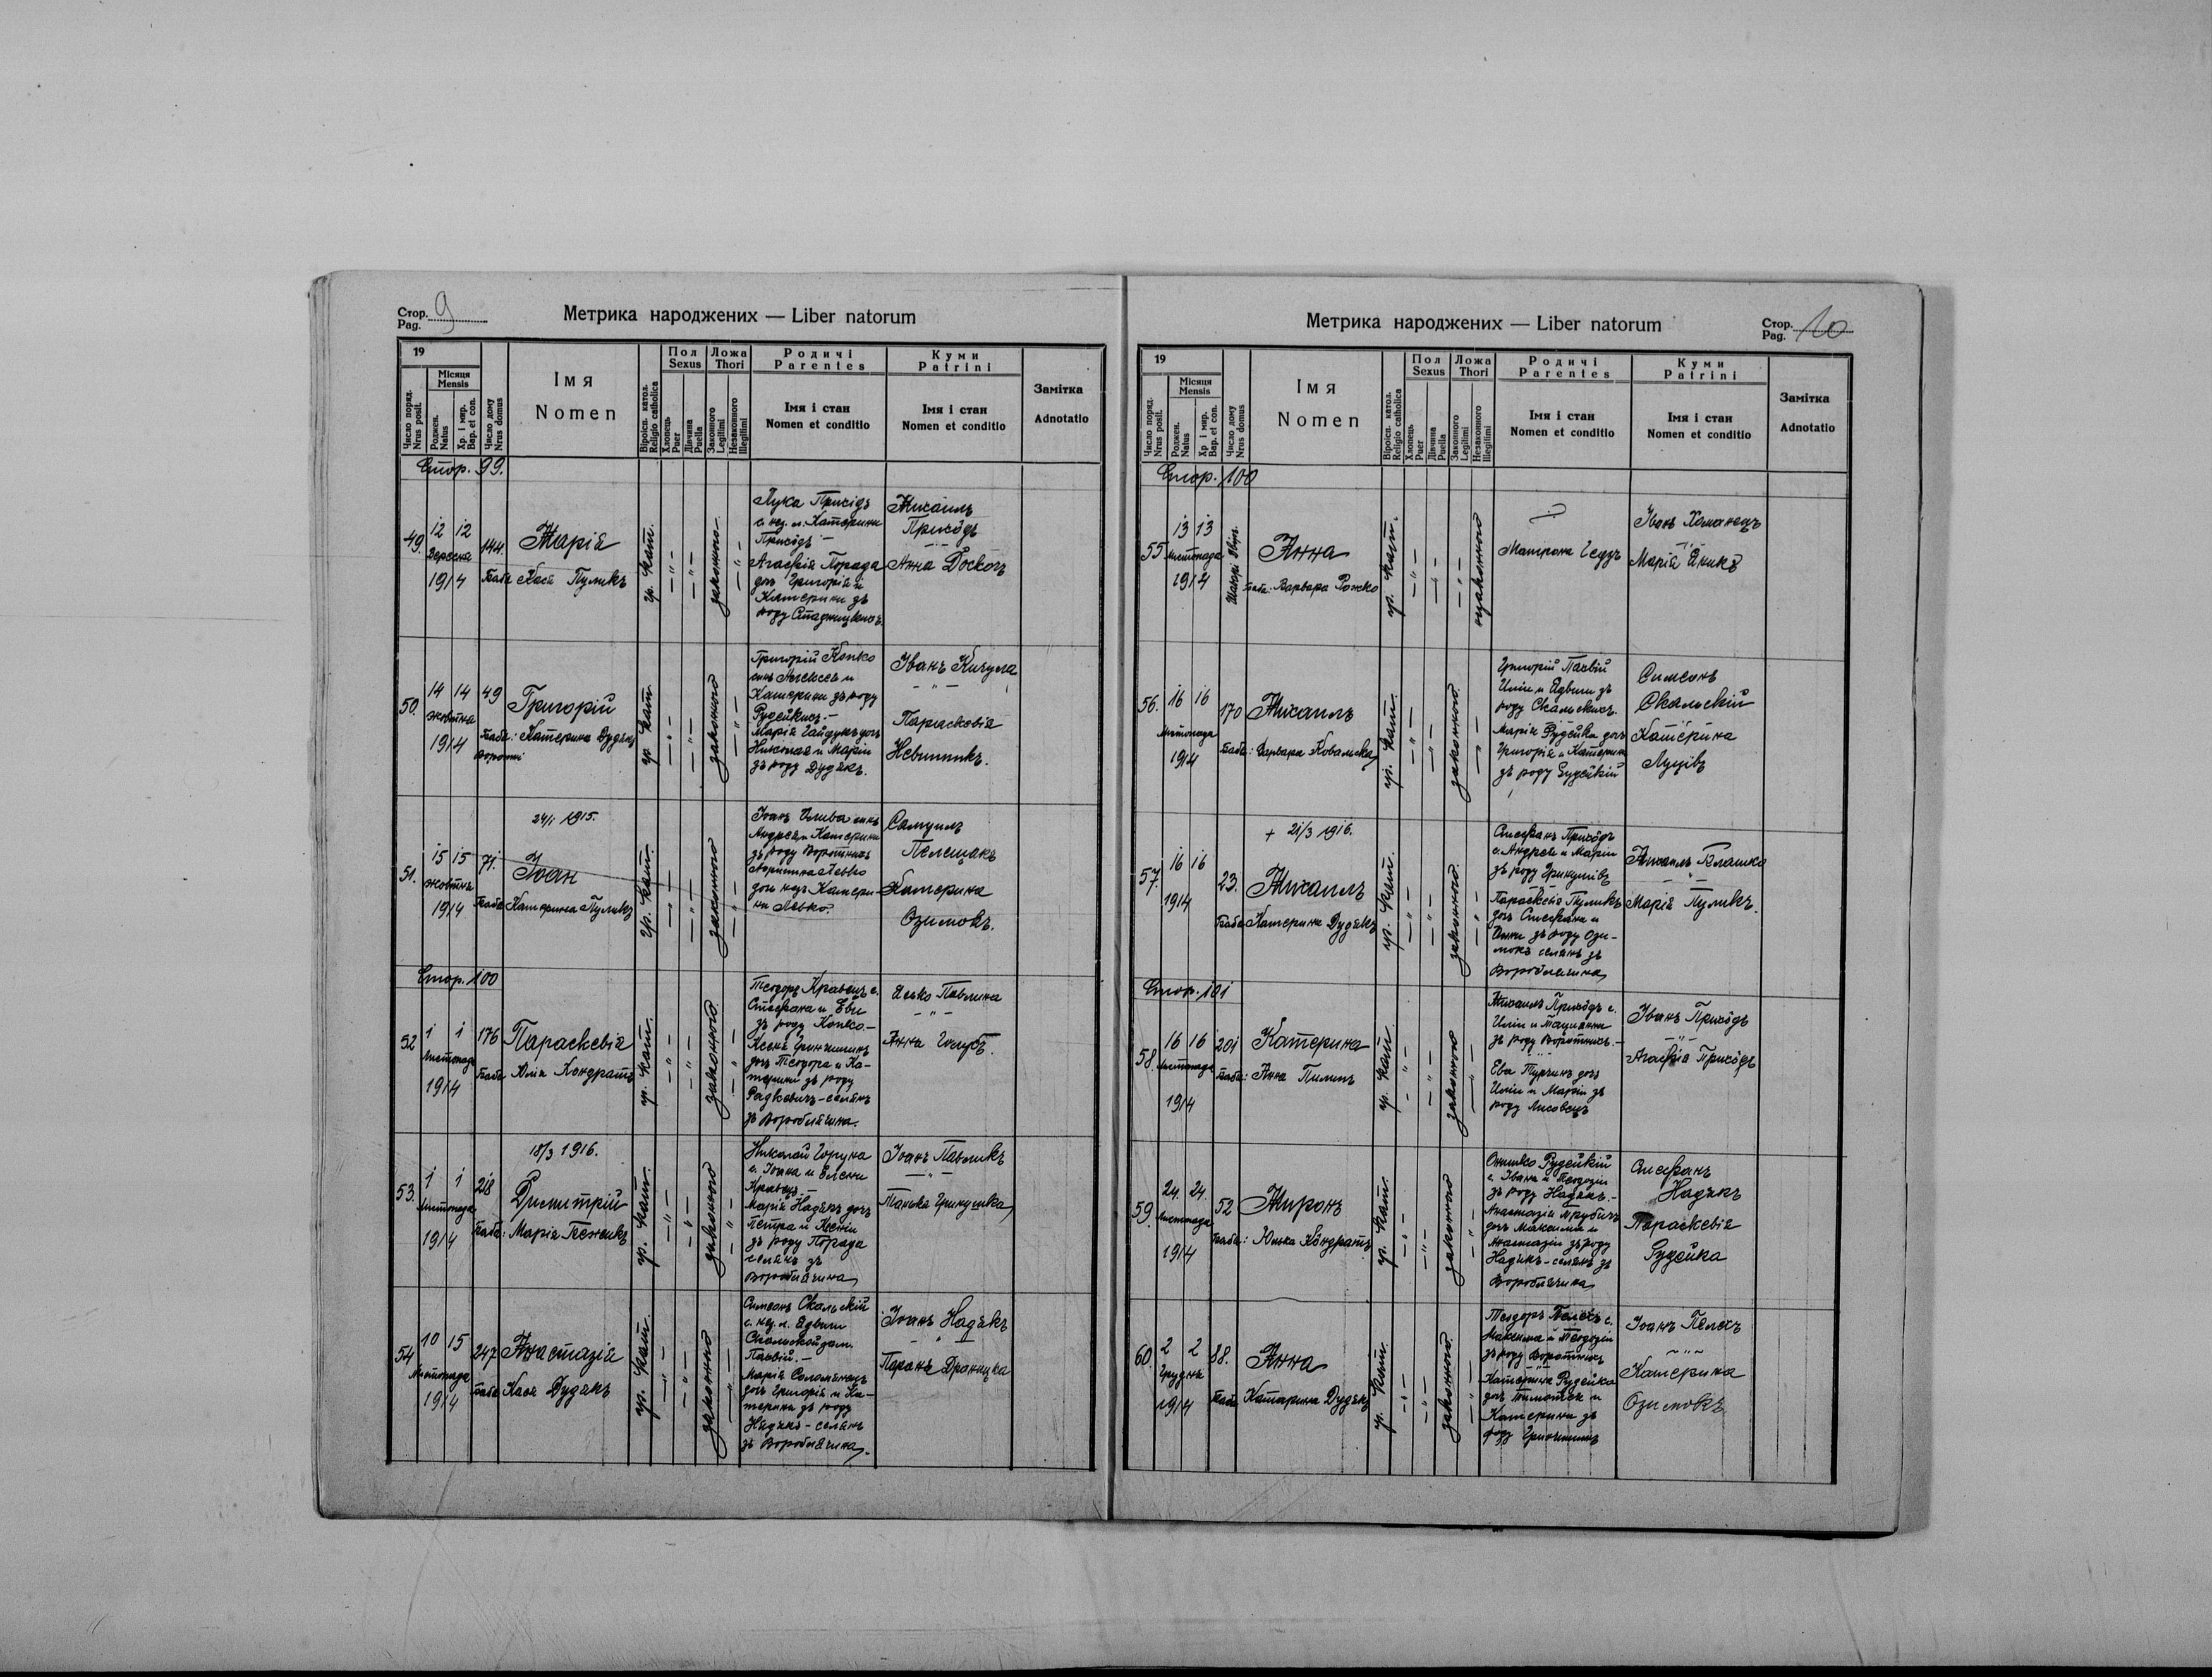 Стор. 9
Pag.
Метрика народжених — Liber natorum
19
Число поряд.
Nrus posit.
Місяця
Mensis
Роджен.
Natus
Хр. і мир.
Bap. et con.
Число дому
Nrus domus
Імя
Nomen
Віроісп. катол.
Religio catholica
Пол
Sexus
Хлопець
Puer
Дівчина
Puella
Ложа
Thori
Законного
Legitimi
Незаконного
Illegitimi
Родичі
Parentes
Імя і стан
Nomen et conditio
Куми
Patrini
Імя і стан
Nomen et conditio
Замітка
Adnotatio
Стор. 99.
49.
12 12
Вересня
1914
144.
Марія
Баба Кася Пуликъ
гр. кат.
законного
ЛукаПрихідъ
с. нез. м. Катерини
Приходъ —
Агафія Порада
доч Григорія и
Катерини зъ
роду
Михаилъ
Приходъ
Анна Доскочъ
50.
14 14
жовтня
1914
49
Григорій
Баба: Катерина Дудякъ
гр. кат.
законного
Григорій Копко
синъ Алексея и
Катерини зъ роду
Рудейкихъ. —
Марія Гайдукъ доч
Николая и Маріи
зъ роду Дудякъ.
Іванъ Кичула
Параскевія
Невишникъ.
24/1 1915.
51.
15 15
жовтня
1914
71.
Іоан
Баба Катерина Пуликъ
гр. кат.
законного
Іоанъ синъ
Андрея и Катерини
зъ роду Воротникъ
Левко
доч нез. Катери-
ни Левко.
Самуилъ
Пелещакъ
Катерина
Озимокъ.
Стор. 100
52
1 1
Листопада
1914
176
Параскевія
Баба Юлія Кондратъ
гр. кат.
законного
Теодоръ Кравецъ с.
Стефана и Еви
зъ роду Копко. —
Ксенъ Гринчишинъ
доч Теодора и Ка-
терини зъ роду
Радкевичъ — селянъ
зъ Вороблячина.
Яцько Павлина
Анна Голубъ.
18/3 1916.
53.
1 1
Листопада
1914
218
Димитрій
Баба: Марія
гр. кат.
законного
Николай Горуна
с. Іоана и Елени
Кравецъ —
Марія Надякъ доч
Петра и Ксеніи
зъ роду Порада
селянъ зъ
Вороблячина
Іоанъ Павликъ
Танька Гринушка
54
10 15
Листопада
1914
247
Анастазія
Баба Кася Дудякъ
гр. кат.
законного
Симеонъ Скальскій
с. нез. м. Ядвиги
Скальской
Пасвій. —
Марія Соломянецъ
доч Григорія и Ка-
терини зъ роду
Надякъ — селянъ
зъ Вороблячина.
Іоанъ Надякъ
Дронцка
Метрика народжених — Liber natorum
Стор. 10
Pag.
19
Число поряд.
Nrus posit.
Місяця
Mensis
Роджен.
Natus
Хр. і мир.
Bap. et con.
Число дому
Nrus domus
Імя
Nomen
Віроісп. катол.
Religio catholica
Пол
Sexus
Хлопець
Puer
Дівчина
Puella
Ложа
Thori
Законного
Legitimi
Незаконного
Illegitimi
Родичі
Parentes
Імя і стан
Nomen et conditio
Куми
Patrini
Імя і стан
Nomen et conditio
Замітка
Adnotatio
Стор. 100
55
13 13
Листопада
1914
Анна
Баба: Варвара Рожко
гр. кат.
Матрона Гедзъ
Іванъ Хоманецъ
Марія Яникъ
56.
16 16
Листопада
1914
170
Михаилъ
Баба: Варвара Ковальска
гр. кат.
законного
Григорій Пасвій
Иліи и Ядвиги зъ
роду Скальскихъ.
Марія Рудейка доч
Григорія и Катерини
зъ роду Рудейкій
Симеонъ
Скальскій
Катерина
Луцівъ
+ 21/3 1916.
57.
16 16
1914
23.
Михаилъ
Баба Катерина Дудякъ
гр. кат.
законного
Стефанъ Приходъ
с. Андрея и Маріи
зъ роду
Параскевія Пуликъ
доч Стефана и
Анни зъ роду Ози-
мокъ селянъ зъ
Вороблячина
Михаилъ Влашка
Марія Пуликъ.
Стор. 101
58.
16 16
Листопада
1914
201
Катерина
Баба: Анна Пилипъ
гр. кат.
законного
Михаилъ Приходъ с.
Иліи и Тацианни
зъ роду Воротникъ. —
Ева Турчинъ доч
Иліи и Маріи зъ
роду Лисовецъ
Іванъ Приходъ
Агафія Приходъ
59.
24. 24.
Листопада
1914
52
Миронъ
Баба: Юлька Кондратъ
гр. кат.
законного
Онишко Рудейкій
с. Івана и Теодозіи
зъ роду Надякъ. —
Анастазія Трубичъ
доч Максима и
Анастазіи зъ роду
Надякъ — селянъ зъ
Вороблячина
Стефанъ
Надякъ
Параскевія
Рудейка
60.
2 2
Грудня
1914
88.
Анна
Баба Катарина Дудякъ
гр. кат.
законного
Теодоръ Пелехъ с.
Максима и Теодозіи
зъ роду Воротникъ
Катерина Рудейка
доч Тимотея и
Катерини зъ
роду Гринчишинъ
Іоанъ Пелехъ
Катерина
Озимокъ